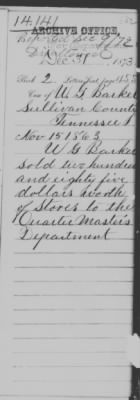 14,141
ARCHIVE OFFICE,
Dec 31
Book 2 Letters Sent, page
Case of W G Barker
Sullivan County
Tennessee
Nov 15 1863
W G Barker
sold two hundred
and eighty five
dollars worth
of Stores to the
Quarter Masters
Department